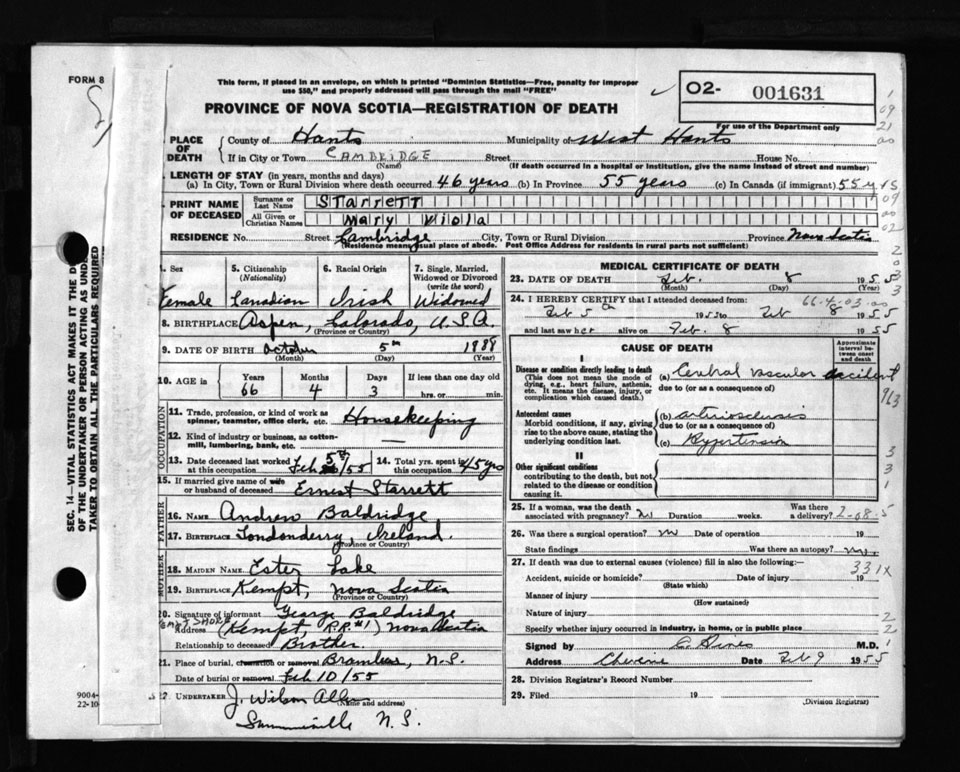 FORM 8
This form, if placed in an envelope, on which is printed "Dominion Statistics—Free, penalty for improper
use $50," and properly addressed will pass through the mail "FREE"
PROVINCE OF NOVA SCOTIA—REGISTRATION OF DEATH
O2- 001631
For use of the Department only
PLACE OF DEATH
County of Hants Municipality of West Hants
If in City or Town CAMBRIDGE Street House No.
(Name) (If death occurred in a hospital or institution, give the name instead of street and number)
LENGTH OF STAY (in years, months and days)
(a) In City, Town or Rural Division where death occurred 46 years (b) In Province 55 years (c) In Canada (if immigrant) 55 yrs
PRINT NAME OF DECEASED
Surname or Last Name Starrett
All Given or Christian Names Mary Viola
RESIDENCE No. Street Cambridge City, Town or Rural Division Province Nova Scotia
(Residence means usual place of abode. Post Office Address for residents in rural parts not sufficient)
SEC. 14—VITAL STATISTICS ACT MAKES IT THE DU
OF THE UNDERTAKER OR PERSON ACTING AS UND
TAKER TO OBTAIN ALL THE PARTICULARS REQUIRED
4. Sex Female
5. Citizenship (Nationality) Canadian
6. Racial Origin Irish
7. Single, Married, Widowed or Divorced (write the word) Widowed
8. BIRTHPLACE Aspen, Colorado, U.S.A.
(Province or Country)
9. DATE OF BIRTH October 5th 1888
(Month) (Day) (Year)
10. AGE in Years 66 Months 4 Days 3 If less than one day old
hrs. or min.
OCCUPATION
11. Trade, profession, or kind of work as spinner, teamster, office clerk, etc. Housekeeping
12. Kind of industry or business, as cotton-mill, lumbering, bank, etc. —
13. Date deceased last worked at this occupation Feb 5th/55
14. Total yrs. spent in this occupation 45 yrs
15. If married give name of wife or husband of deceased Ernest Starrett
FATHER
16. NAME Andrew Baldridge
17. BIRTHPLACE Londonderry, Ireland.
(Province or Country)
MOTHER
18. MAIDEN NAME Ester Lake
19. BIRTHPLACE Kempt, Nova Scotia
(Province or Country)
20. Signature of informant George Baldridge
Address (Kempt, R.R. #1) Nova Scotia
Relationship to deceased Brother.
21. Place of burial, cremation or removal N.S.
Date of burial or removal Feb 10/55
22. UNDERTAKER J. Wilson Allen
(Name and address)
Summerville N.S.
9004-
22-10-
MEDICAL CERTIFICATE OF DEATH
23. DATE OF DEATH Feb. 8 1955
(Month) (Day)
24. I HEREBY CERTIFY that I attended deceased from:
Feb 5th 1955 to Feb 8 1955
and last saw her alive on Feb. 8 1955
CAUSE OF DEATH
Approximate interval between onset and death
I
Disease or condition directly leading to death
(This does not mean the mode of dying, e.g., heart failure, asthenia, etc. It means the disease, injury, or complication which caused death.)
(a) Cerebral vascular accident
due to (or as a consequence of)
Antecedent causes
Morbid conditions, if any, giving rise to the above cause, stating the underlying condition last.
(b) arteriosclerosis
due to (or as a consequence of)
(c) Hypertension
II
Other significant conditions
contributing to the death, but not related to the disease or condition causing it.
25. If a woman, was the death associated with pregnancy? no Duration weeks. Was there a delivery?
26. Was there a surgical operation? no Date of operation 19
State findings Was there an autopsy? no.
27. If death was due to external causes (violence) fill in also the following:—
331X
Accident, suicide or homicide? Date of injury 19
(State which)
Manner of injury
(How sustained)
Nature of injury
Specify whether injury occurred in industry, in home, or in public place
Signed by M.D.
Address Date Feb 9 1955
28. Division Registrar's Record Number
29. Filed 19
(Division Registrar)